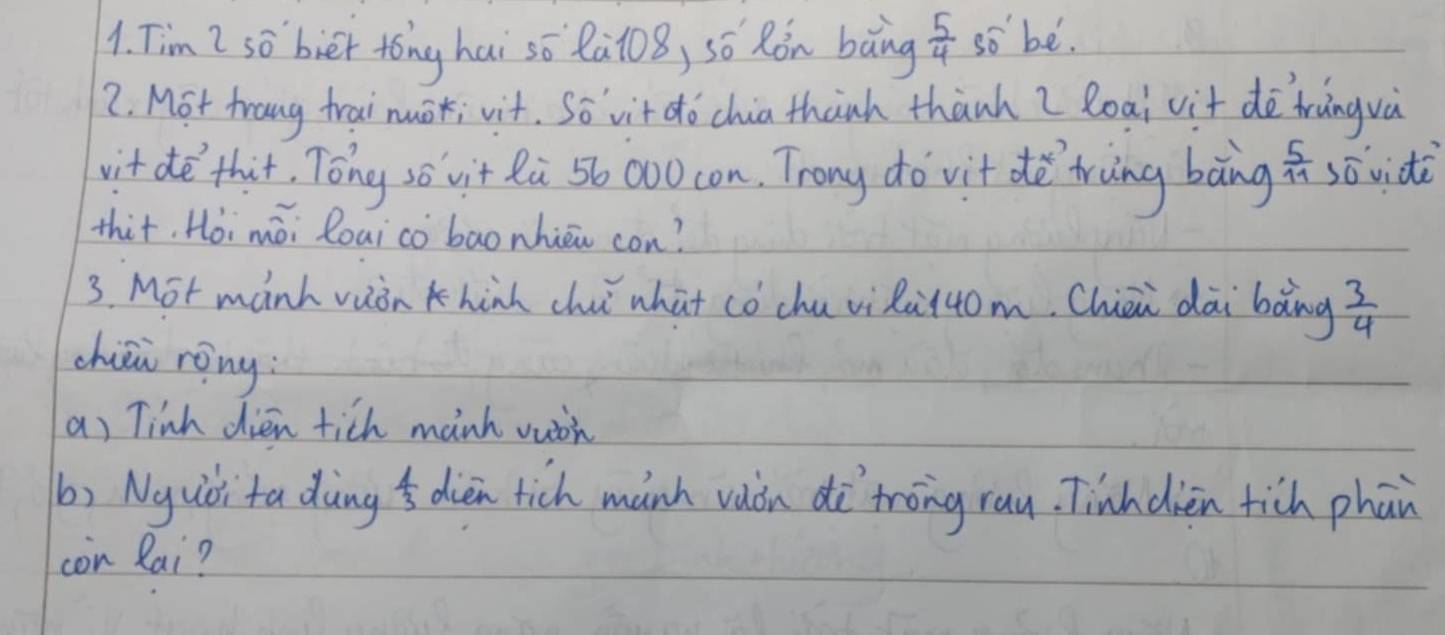 1. Tìm 2 số biết tổng hai số là 108, số lớn bằng 5/4 số bé.
2. Một trang trại nuôi vịt. Số vịt đó chia thành thành 2 loại vịt đẻ trứng và
vịt để thịt. Tổng số vịt là 56 000 con. Trong đó vịt đẻ trứng bằng 5/11 số vị để
thịt. Hỏi mỗi loại có bao nhiêu con?
3. Một mảnh vườn hình chữ nhật có chu vi là 140 m. Chiều dài bằng 3/4
chiều rộng:
a) Tính diện tích mảnh vườn
b) Người ta dùng diện tích mảnh vườn để trồng rau. Tính diện tích phần
còn lại?